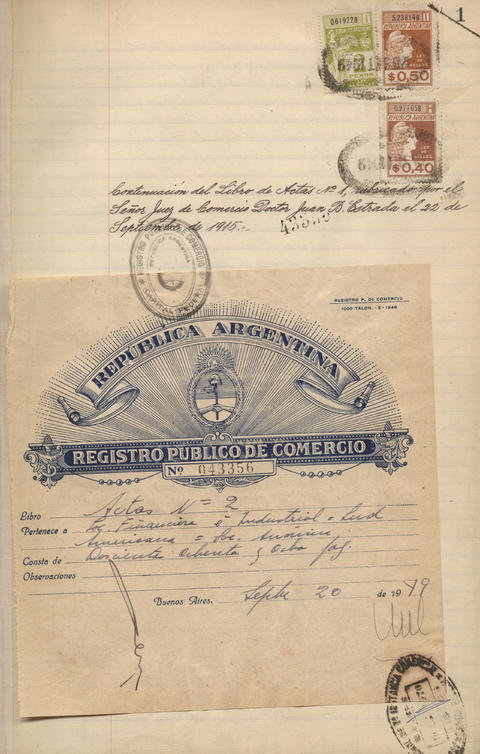 1
0619220
5238146
REPUBLICA ARGENTINA
LEY DE SELLOS
$0,50
0277658
REPUBLICA ARGENTINA
LEY DE SELLOS
$0,40
Continuación del Libro de Actas Nº 1, rubricado por el
Señor Juez de Comercio Doctor Juan B. Estrada el 22 de
Septiembre de 1915.-
REGISTRO PUBLICO DE COMERCIO
REPUBLICA ARGENTINA
REGISTRO P. DE COMERCIO
1000 TALON. -5-1948
REPÚBLICA ARGENTINA
REGISTRO PÚBLICO DE COMERCIO
Nº 043356
Libro Actas Nº 2
Pertenece a La Financiera e Industrial Sud
Americana = Soc. Anónima
Consta de Doscientos Ochenta y Ocho fog.
Observaciones
Buenos Aires, Septbe 20 de 1949